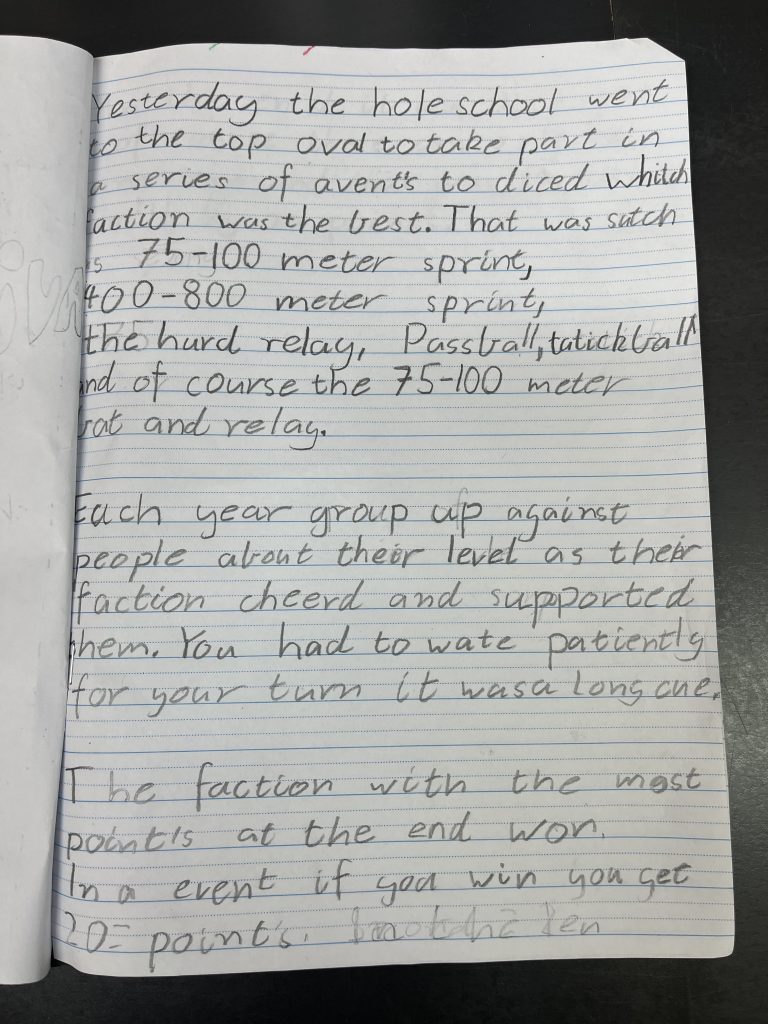 Yesterday the hole school went
to the top oval to take part in
a series of avent's to diced whitch
faction was the best. That was sutch
as 75-100 meter sprint,
400-800 meter sprint,
the hurd relay, Passball, tatickball
and of course the 75-100 meter
bat and relay.
Each year group up against
people about their level as their
faction cheerd and supported
them. You had to wate patiently
for your turn it was a long cue.
The faction with the most
point's at the end won.
In a event if you win you get
20 point's.